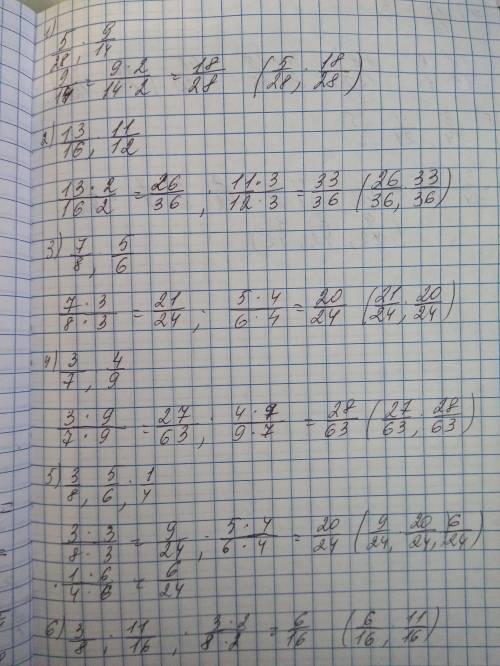 1)
5/28 ; 9/14
9/14 = 9·2/14·2 = 18/28 (5/28 ; 18/28)
2) 13/16 , 11/12
13·2/16·2 = 26/36 ; 11·3/12·3 = 33/36 (26/36 , 33/36)
3) 7/8 , 5/6
7·3/8·3 = 21/24 ; 5·4/6·4 = 20/24 (21/24 , 20/24)
4) 3/7 , 4/9
3·9/7·9 = 27/63 ; 4·7/9·7 = 28/63 (27/63 ; 28/63)
5) 3/8 , 5/6 ; 1/4
3·3/8·3 = 9/24 ; 5·4/6·4 = 20/24 (9/24 , 20/24 , 6/24)
1·6/4·6 = 6/24
6) 3/8 ; 11/16 ; 3·2/8·2 = 6/16 (6/16 ; 11/16)